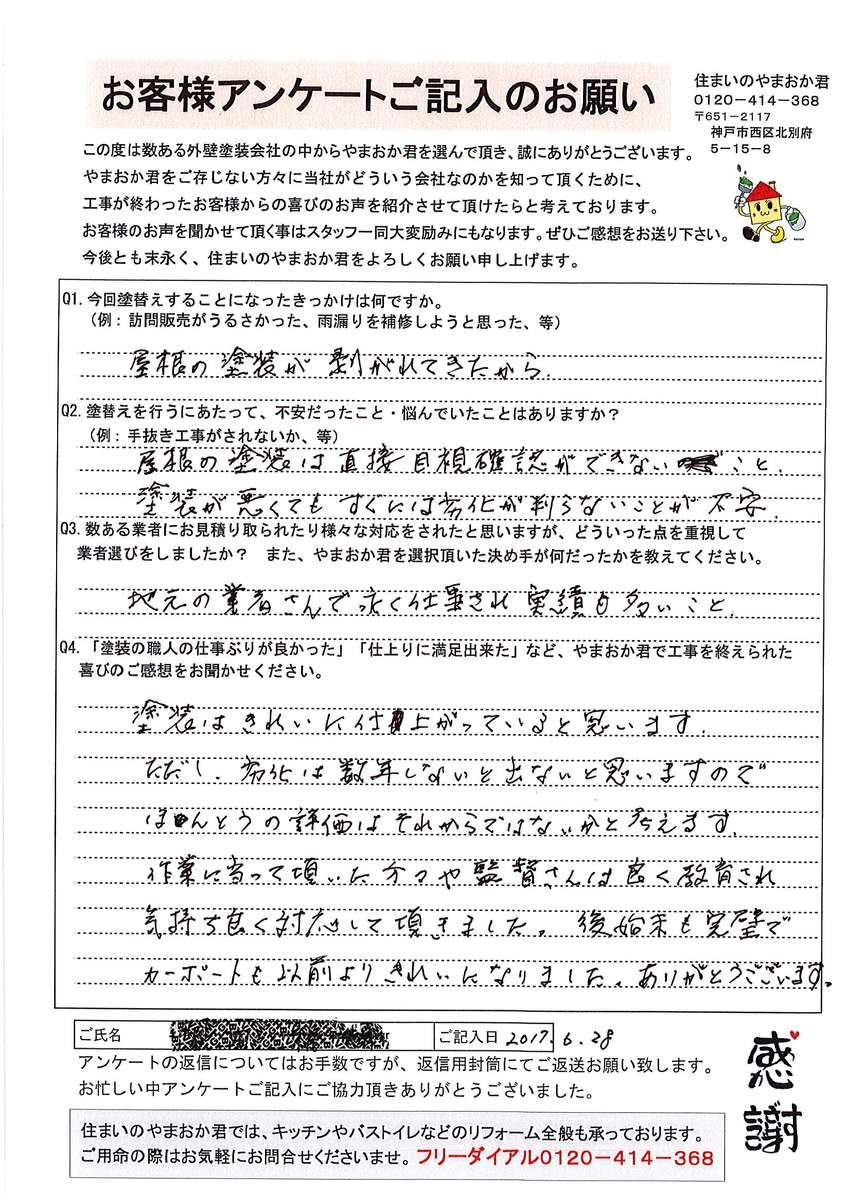 お客様アンケートご記入のお願い
住まいのやまおか君
0120－414－368
〒651－2117
神戸市西区北別府
5－15－8
この度は数ある外壁塗装会社の中からやまおか君を選んで頂き、誠にありがとうございます。
やまおか君をご存じない方々に当社がどういう会社なのかを知って頂くために、
工事が終わったお客様からの喜びのお声を紹介させて頂けたらと考えております。
お客様のお声を聞かせて頂く事はスタッフ一同大変励みにもなります。ぜひご感想をお送り下さい。
今後とも末永く、住まいのやまおか君をよろしくお願い申し上げます。
Q1. 今回塗替えすることになったきっかけは何ですか。
（例：訪問販売がうるさかった、雨漏りを補修しようと思った、等）
屋根の塗装が剥がれてきたから.
Q2. 塗替えを行うにあたって、不安だったこと・悩んでいたことはありますか？
（例：手抜き工事がされないか、等）
屋根の塗装は直接目視確認ができないこと.
塗装が悪くてもすぐには劣化が判らないことが不安.
Q3. 数ある業者にお見積り取られたり様々な対応をされたと思いますが、どういった点を重視して
業者選びをしましたか？ また、やまおか君を選択頂いた決め手が何だったかを教えてください。
地元の業者さんで永く仕事され実績も多いこと.
Q4. 「塗装の職人の仕事ぶりが良かった」「仕上りに満足出来た」など、やまおか君で工事を終えられた
喜びのご感想をお聞かせください。
塗装はきれいに仕上がっていると思います.
ただし、劣化は数年しないと出ないと思いますので
ほんとうの評価はそれからではないかと考えます.
作業に当って頂いた方々や監督さんは良く教育され
気持ち良く対応して頂きました。後始末も完璧で
カーポートも以前よりきれいになりました。ありがとうございます。
ご氏名
ご記入日 2017. 6. 28
アンケートの返信についてはお手数ですが、返信用封筒にてご返送お願い致します。
お忙しい中アンケートご記入にご協力頂きありがとうございました。
感謝
住まいのやまおか君では、キッチンやバストイレなどのリフォーム全般も承っております。
ご用命の際はお気軽にお問合せくださいませ。フリーダイアル0120－414－368